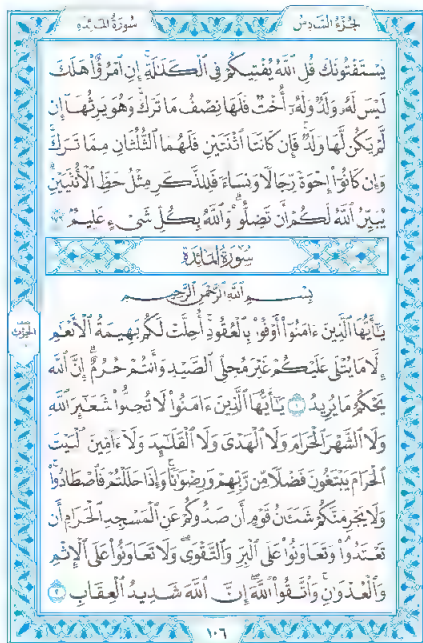 الجزء السادس سورة المائدة
يَسْتَفْتُونَكَ قُلِ ٱللَّهُ يُفْتِيكُمْ فِى ٱلْكَلَٰلَةِ إِنِ ٱمْرُؤٌا۟ هَلَكَ
لَيْسَ لَهُۥ وَلَدٌ وَلَهُۥٓ أُخْتٌ فَلَهَا نِصْفُ مَا تَرَكَ وَهُوَ يَرِثُهَآ إِن
لَّمْ يَكُن لَّهَا وَلَدٌ فَإِن كَانَتَا ٱثْنَتَيْنِ فَلَهُمَا ٱلثُّلُثَانِ مِمَّا تَرَكَ
وَإِن كَانُوٓا۟ إِخْوَةً رِّجَالًا وَنِسَآءً فَلِلذَّكَرِ مِثْلُ حَظِّ ٱلْأُنثَيَيْنِ
يُبَيِّنُ ٱللَّهُ لَكُمْ أَن تَضِلُّوا۟ وَٱللَّهُ بِكُلِّ شَىْءٍ عَلِيمٌۢ
سُورَةُ المَائِدَةِ
بِسْمِ ٱللَّهِ ٱلرَّحْمَٰنِ ٱلرَّحِيمِ
يَٰٓأَيُّهَا ٱلَّذِينَ ءَامَنُوٓا۟ أَوْفُوا۟ بِٱلْعُقُودِ أُحِلَّتْ لَكُم بَهِيمَةُ ٱلْأَنْعَٰمِ
إِلَّا مَا يُتْلَىٰ عَلَيْكُمْ غَيْرَ مُحِلِّى ٱلصَّيْدِ وَأَنتُمْ حُرُمٌ إِنَّ ٱللَّهَ
يَحْكُمُ مَا يُرِيدُ ١ يَٰٓأَيُّهَا ٱلَّذِينَ ءَامَنُوا۟ لَا تُحِلُّوا۟ شَعَٰٓئِرَ ٱللَّهِ
وَلَا ٱلشَّهْرَ ٱلْحَرَامَ وَلَا ٱلْهَدْىَ وَلَا ٱلْقَلَٰٓئِدَ وَلَآ ءَآمِّينَ ٱلْبَيْتَ
ٱلْحَرَامَ يَبْتَغُونَ فَضْلًا مِّن رَّبِّهِمْ وَرِضْوَٰنًا وَإِذَا حَلَلْتُمْ فَٱصْطَادُوا۟
وَلَا يَجْرِمَنَّكُمْ شَنَـَٔانُ قَوْمٍ أَن صَدُّوكُمْ عَنِ ٱلْمَسْجِدِ ٱلْحَرَامِ أَن
تَعْتَدُوا۟ وَتَعَاوَنُوا۟ عَلَى ٱلْبِرِّ وَٱلتَّقْوَىٰ وَلَا تَعَاوَنُوا۟ عَلَى ٱلْإِثْمِ
وَٱلْعُدْوَٰنِ وَٱتَّقُوا۟ ٱللَّهَ إِنَّ ٱللَّهَ شَدِيدُ ٱلْعِقَابِ ٢
١٠٦